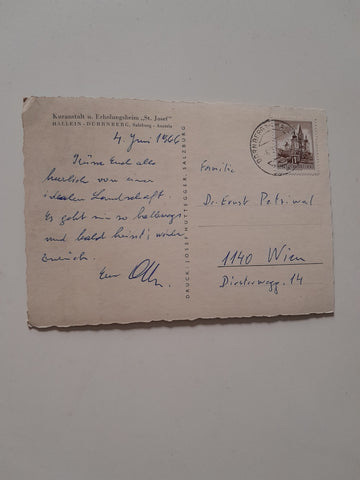 Kuranstalt u. Erholungsheim „St. Josef"
HALLEIN-DÜRRNBERG, Salzburg - Austria
4. Juni 1966
Grüsse Euch alle
herzlich von einer
idealen Landschaft.
Es geht mir so halbwegs
und bald heisst's wieder
zurück.
Euer
DRUCK: JOSEF HUTTEGGER, SALZBURG
Familie
Dr. Ernst Petriwal
1140 Wien
Diesterwegg. 14